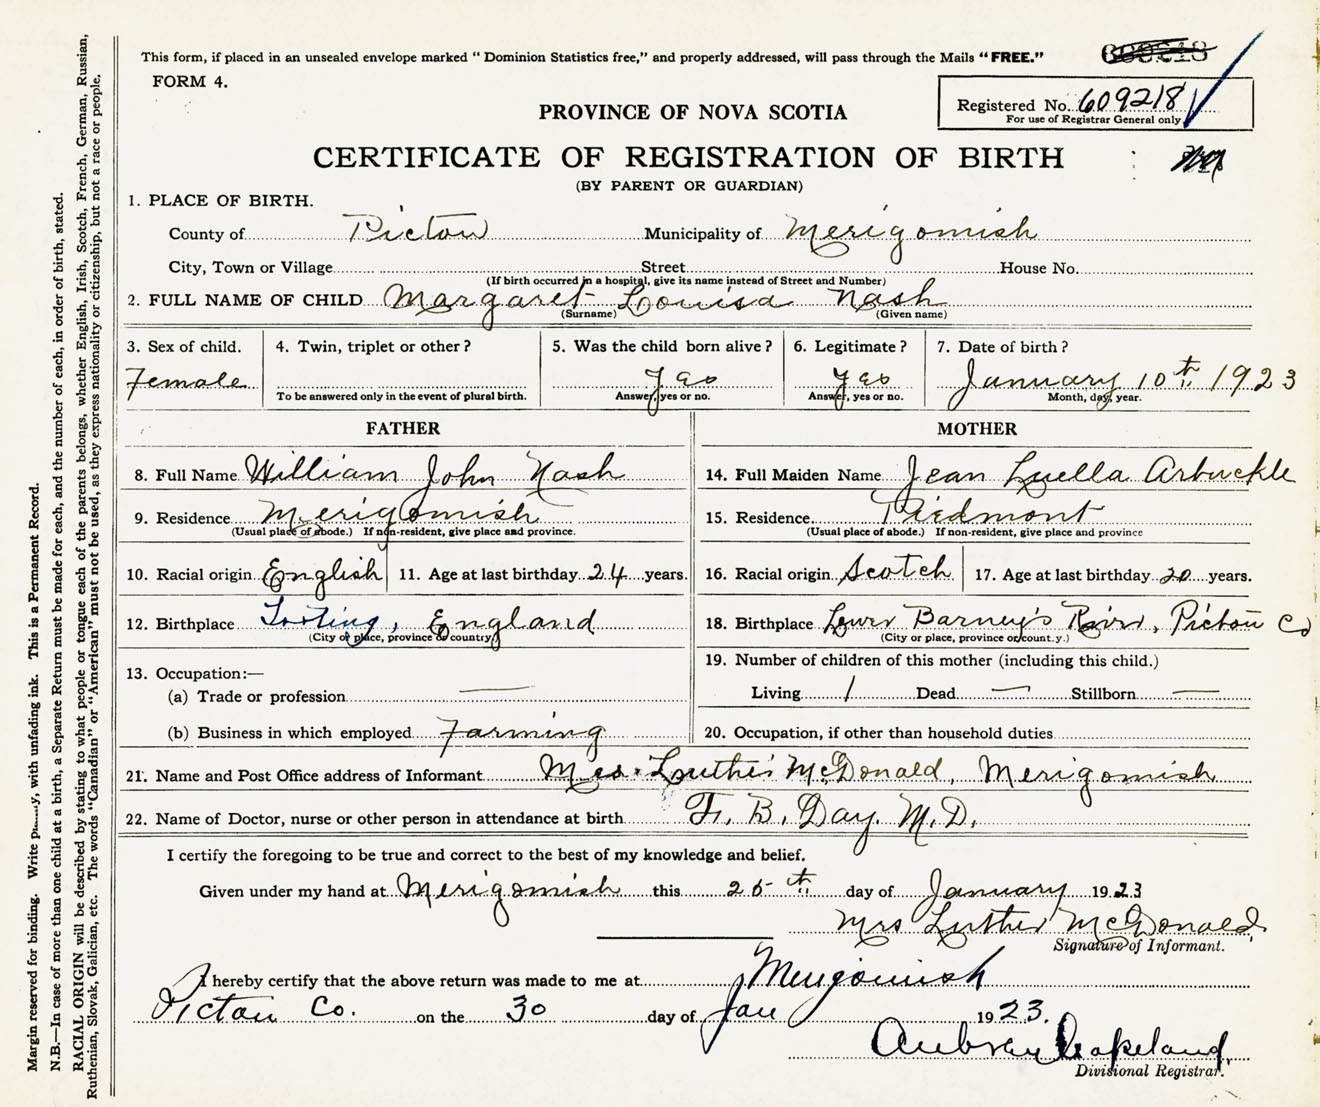 This form, if placed in an unsealed envelope marked "Dominion Statistics free," and properly addressed, will pass through the Mails "FREE."
FORM 4.
Registered No. 609218
For use of Registrar General only
PROVINCE OF NOVA SCOTIA
CERTIFICATE OF REGISTRATION OF BIRTH
(BY PARENT OR GUARDIAN)
1. PLACE OF BIRTH.
County of Pictou Municipality of Merigomish
City, Town or Village Street House No.
(If birth occurred in a hospital, give its name instead of Street and Number)
2. FULL NAME OF CHILD Margaret Louisa Nash
(Surname) (Given name)
3. Sex of child. Female
4. Twin, triplet or other?
To be answered only in the event of plural birth.
5. Was the child born alive? Yes
Answer, yes or no.
6. Legitimate? Yes
Answer, yes or no.
7. Date of birth? January 10th 1923
Month, day, year.
FATHER
8. Full Name William John Nash
9. Residence Merigomish
(Usual place of abode.) If non-resident, give place and province.
10. Racial origin English 11. Age at last birthday 24 years.
12. Birthplace Tooting, England
(City or place, province or country)
13. Occupation:—
(a) Trade or profession —
(b) Business in which employed Farming
MOTHER
14. Full Maiden Name Jean Luella Arbuckle
15. Residence Piedmont
(Usual place of abode.) If non-resident, give place and province
16. Racial origin Scotch 17. Age at last birthday 20 years.
18. Birthplace Lower Barney's River, Pictou Co
(City or place, province or count.y.)
19. Number of children of this mother (including this child.)
Living 1 Dead — Stillborn —
20. Occupation, if other than household duties
21. Name and Post Office address of Informant Mrs. Luther McDonald, Merigomish
22. Name of Doctor, nurse or other person in attendance at birth F. B. Day M.D.
I certify the foregoing to be true and correct to the best of my knowledge and belief.
Given under my hand at Merigomish this 25th day of January 1923
Mrs Luther McDonald
Signature of Informant.
I hereby certify that the above return was made to me at Merigomish
Pictou Co. on the 30 day of Jan 1923.
Aubrey Copeland
Divisional Registrar.
Margin reserved for binding. Write, with unfading ink. This is a Permanent Record.
N.B.—In case of more than one child at a birth, a Separate Return must be made for each, and the number of each, in order of birth, stated.
RACIAL ORIGIN will be described by stating to what people or tongue each of the parents belongs, whether English, Irish, Scotch, French, German, Russian,
Ruthenian, Slovak, Galician, etc. The words "Canadian" or "American" must not be used, as they express nationality or citizenship, but not a race or people.